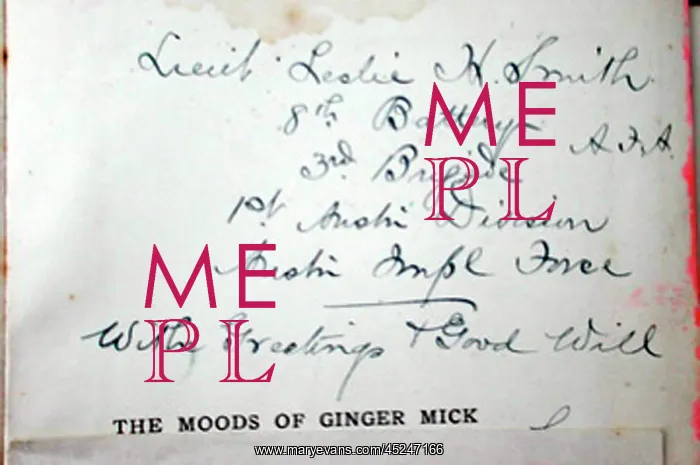 Lieut Leslie H. Smith
8th Battery
3rd Brigade A.F.A.
1st Austn Division
Austn Impl Force
With Greetings & Good Will
THE MOODS OF GINGER MICK
ME
PL
ME
PL
www.maryevans.com/45247166